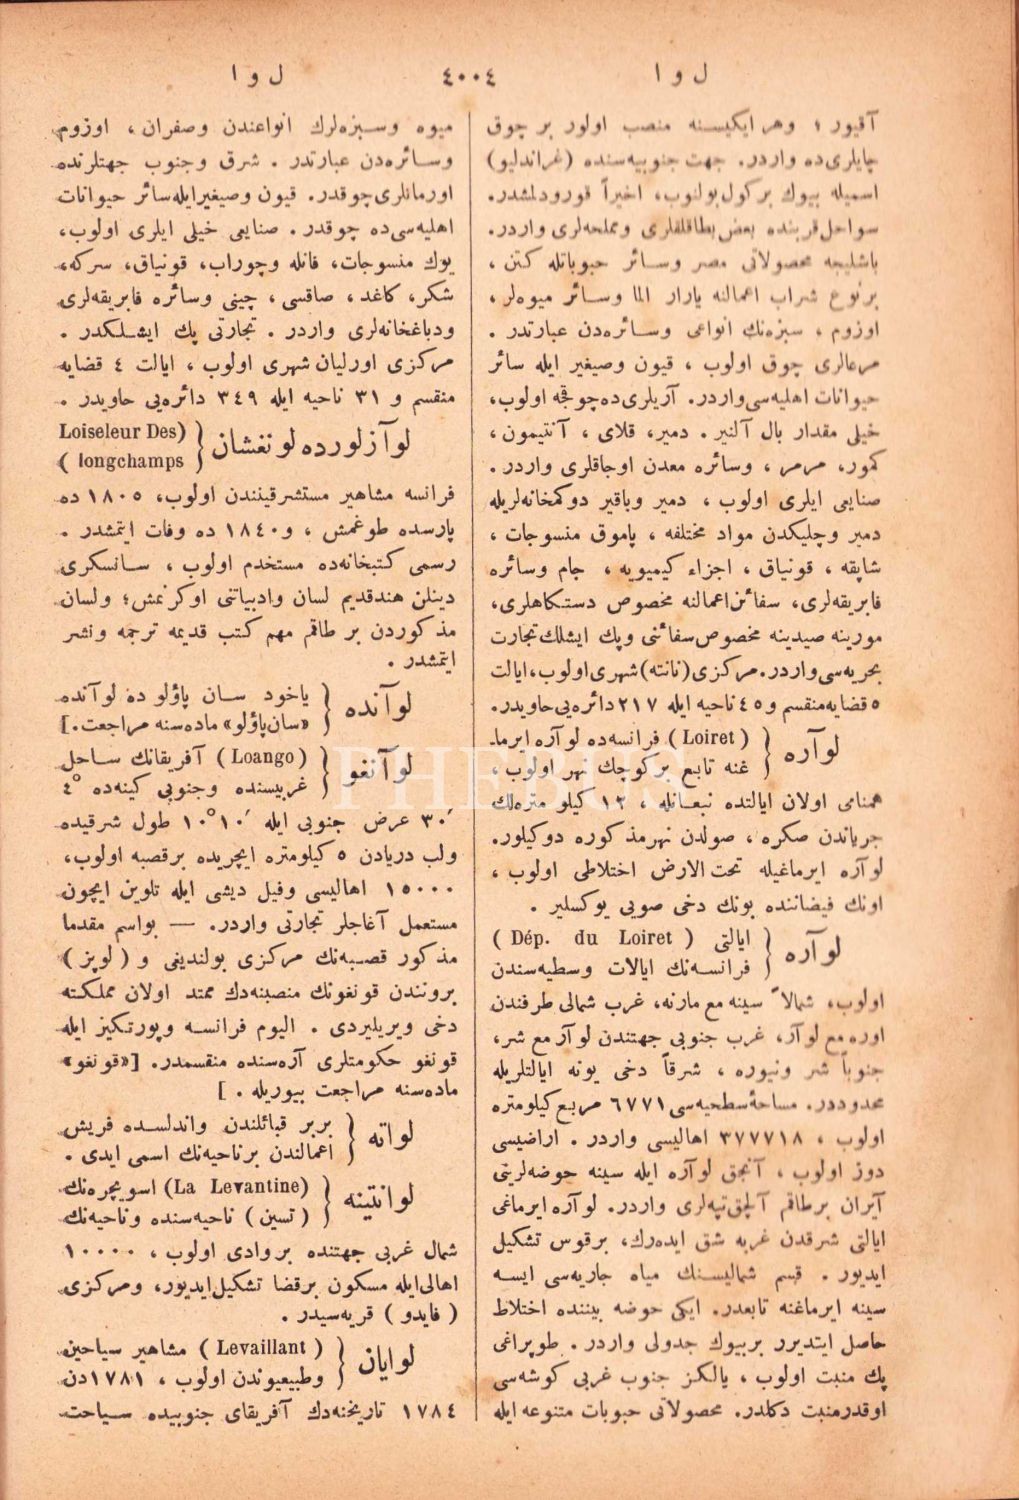 ل و ا
٤٠٠٤
ل و ا
آقیور ؛ وهر ایکیسنه منصب اولور بر چوق
چایلری‌ده واردر. جهت جنوبیه‌سنده (غراندلیو)
اسمیله بیوك بر کول بولنوب، اخیراً قورودلمشدر.
سواحل قربنده بعض بطاقلقلری ومملحه‌لری واردر.
باشلیجه محصولاتی مصر وسائر حبوباتله کتن ،
برنوع شراب اعمالنه یارار الما وسـائر میوه‌لر ،
اوزوم ، سبزه‌نك انواعی وسـائره‌دن عبارتدر .
مرعالری چوق اولوب ، قیون وصغیر ایله سائر
حیوانات اهلیه‌سی واردر. آریلری‌ده چوقجه اولوب،
خیلی مقدار بال آلنیر. دمیر، قلای ، آنتیمون،
کمور، مرمر ، وسائره معدن اوجاقلری واردر.
صنایعی ایلری اولوب ، دمیر وباقیر دوکمخانه‌لریله
دمیر وچلیکدن مواد مختلفه ، پاموق منسوجات ،
شاپقه ، قونیاق ، اجزاء کیمیویه ، جام وسائره
فابریقه‌لری، سفائن اعمالنه مخصوص دستـکاهلری،
مورینه صیدینه مخصوص سفائنی وپك ایشلك تجارت
بحریه‌سی واردر. مرکزی (نانته) شهری اولوب، ایالت
٥ قضایه منقسم و ٤٥ ناحیه ایله ٢١٧ دائره‌یی حاویدر.
لوآره { (Loiret) فرانسه‌ده لوآره ایرما-
غنه تابع بر کوچك نهر اولوب ،
همنامی اولان ایالتده نبعـانله ، ١٢ کیلو متره‌لك
جریاندن صکره ، صولدن نهر مذکوره دوکیلور.
لوآره ایرماغیله تحت الارض اختلاطی اولوب ،
اونك فیضاننده بونك دخی صویی یوکسلیر .
لوآره { ایالتی ( Dép. du Loiret )
فرانسـه‌نك ایالات وسطیه‌سندن
اولوب، شمالاً سینه مع مارنه، غرب شمالی طرفندن
اوره مع لوآر، غرب جنوبی جهتندن لوآر مع شر،
جنوباً شر ونیوره ، شرقاً دخی یونه ایالتلریله
محدوددر. مساحهٔ سطحیه‌سی ٦٧٧١ مربع کیلومتره
اولوب ، ٣٧٧٧١٨ اهالیسی واردر . اراضیسی
دوز اولوب ، آنجق لوآره ایله سینه حوضه‌لرینی
آیران بر طاقم آلچق تپه‌لری واردر. لوآره ایرماغی
ایالتی شرقدن غربه شق ایده‌رك، برقوس تشکیل
ایدیور . قسم شمالیسنك میاه جاریه‌سی ایسه
سینه ایرماغنه تابعدر. ایکی حوضه بیننده اختلاط
حاصل ایتدیرر بربیوك جدولی واردر . طوپراغی
پك منبت اولوب ، یالکز جنوب غربی کوشه‌سی
اوقدر منبت دکلدر. محصولاتی حبوبات متنوعه ایله
میوه وسـبزه‌لرك انواعندن وصفران ، اوزوم
وسـائره‌دن عبارتدر . شرق وجنوب جهتلرنده
اورمانلری چوقدر. قیون وصیغیر ایله سائر حیوانات
اهلیه‌سی‌ده چوقدر . صنایعی خیلی ایلری اولوب،
یوك منسوجات، فانله وچوراب، قونیاق، سرکه،
شکر، کاغد ، صاقسی ، چینی وسائره فابریقه‌لری
ودباغخانه‌لری واردر . تجارتی پك ایشـلـکدر .
مرکزی اورلیان شهری اولوب ، ایالت ٤ قضایه
منقسم و ٣١ ناحیه ایله ٣٤٩ دائره‌یی حاویدر .
لوآزلورده لونغشان { (Loiseleur Des
longchamps )
فرانسه مشاهیر مستشرقینندن اولوب، ١٨٠٥ ده
پارسده طوغمش ، و ١٨٤٠ ده وفات ایتمشدر .
رسمی کتبخانه‌ده مستخدم اولوب ، سـانسکری
دینلن هند قدیم لسان وادبیاتنی اوکرنمش؛ ولسان
مذکوردن بر طاقم مهم کتب قدیمه ترجمه ونشر
ایتمشدر .
لوآنده { یاخود سـان پاؤلو ده لوآنده
«سان پاؤلو» ماده‌سنه مراجعت.]
لوآنغو { (Loango) آفریقانك سـاحل
غربیسنده وجنوبی کینه‌ده ٤°
٣٠′ عرض جنوبی ایله ١٠′ ١٠° طول شرقیده
ولب دریادن ٥ کیلومتره ایچریده برقصبه اولوب،
١٥٠٠٠ اهالیسی وفیل دیشی ایله تلوین ایچون
مستعمل آغاجلر تجارتی واردر. — بواسم مقدما
مذکور قصـبه‌نك مرکزی بولندیغی و ( لوپز )
بروننـدن قونغونك منصبنه‌دك ممتد اولان مملکته
دخی ویریلیردی . الیوم فرانسـه وپورتکیز ایله
قونغو حکومتلری آره‌سنده منقسمدر. [«قونغو»
ماده‌سنه مراجعت بیوریله . ]
لواته { بربر قبائلندن واندلسـده فریش
اعمالندن برناحیه‌نك اسمی ایدی .
لوانتینه { (La Levantine) اسویچره‌نك
( تسین ) ناحیه‌سنده وناحیه‌نك
شمال غربی جهتنده بروادی اولوب ، ١٠٠٠٠
اهالی ایله مسکون برقضا تشکیل ایدیور، ومرکزی
( فایدو ) قریه‌سیدر .
لوایان { ( Levaillant ) مشاهیر سیاحین
وطبیعیوندن اولوب ، ١٧٨١ دن
١٧٨٤ تاریخنه‌دك آفریقای جنوبیده سـیاحت
PHEBUS